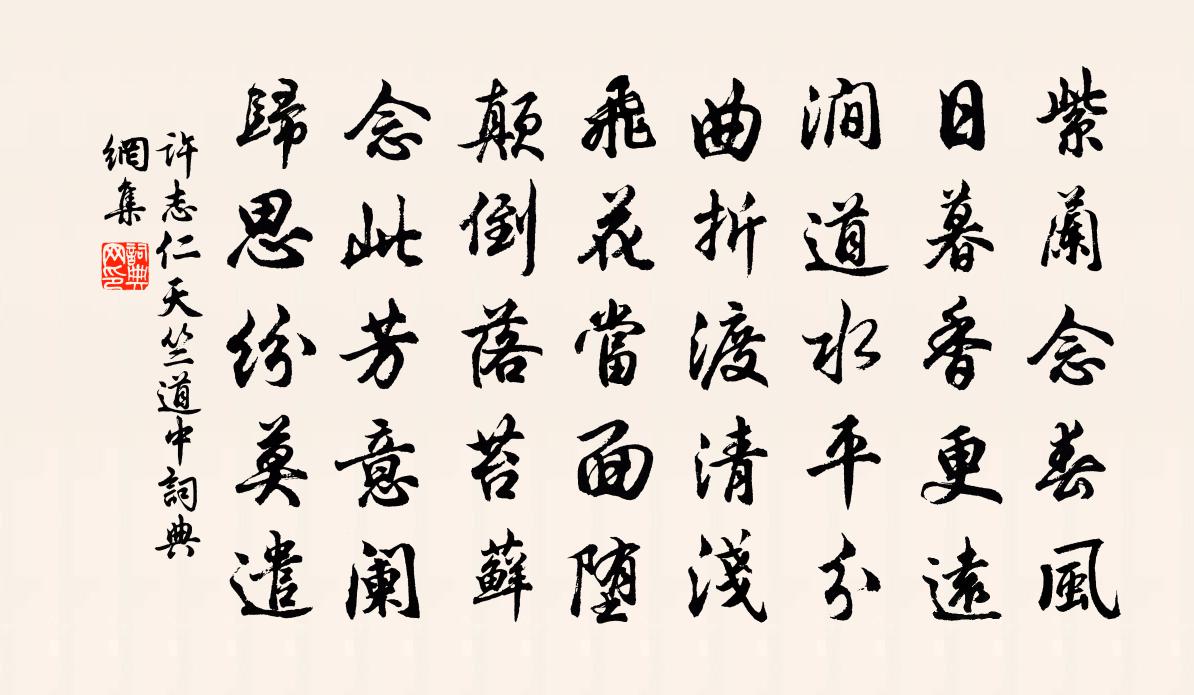 紫蘭念春風
日暮香更遠
澗道水平分
曲折渡清淺
飛花當面堕
顛倒落苔蘚
念此芳意闌
歸思紛莫遣
許志仁天竺道中詞典
網集
詞典
网印